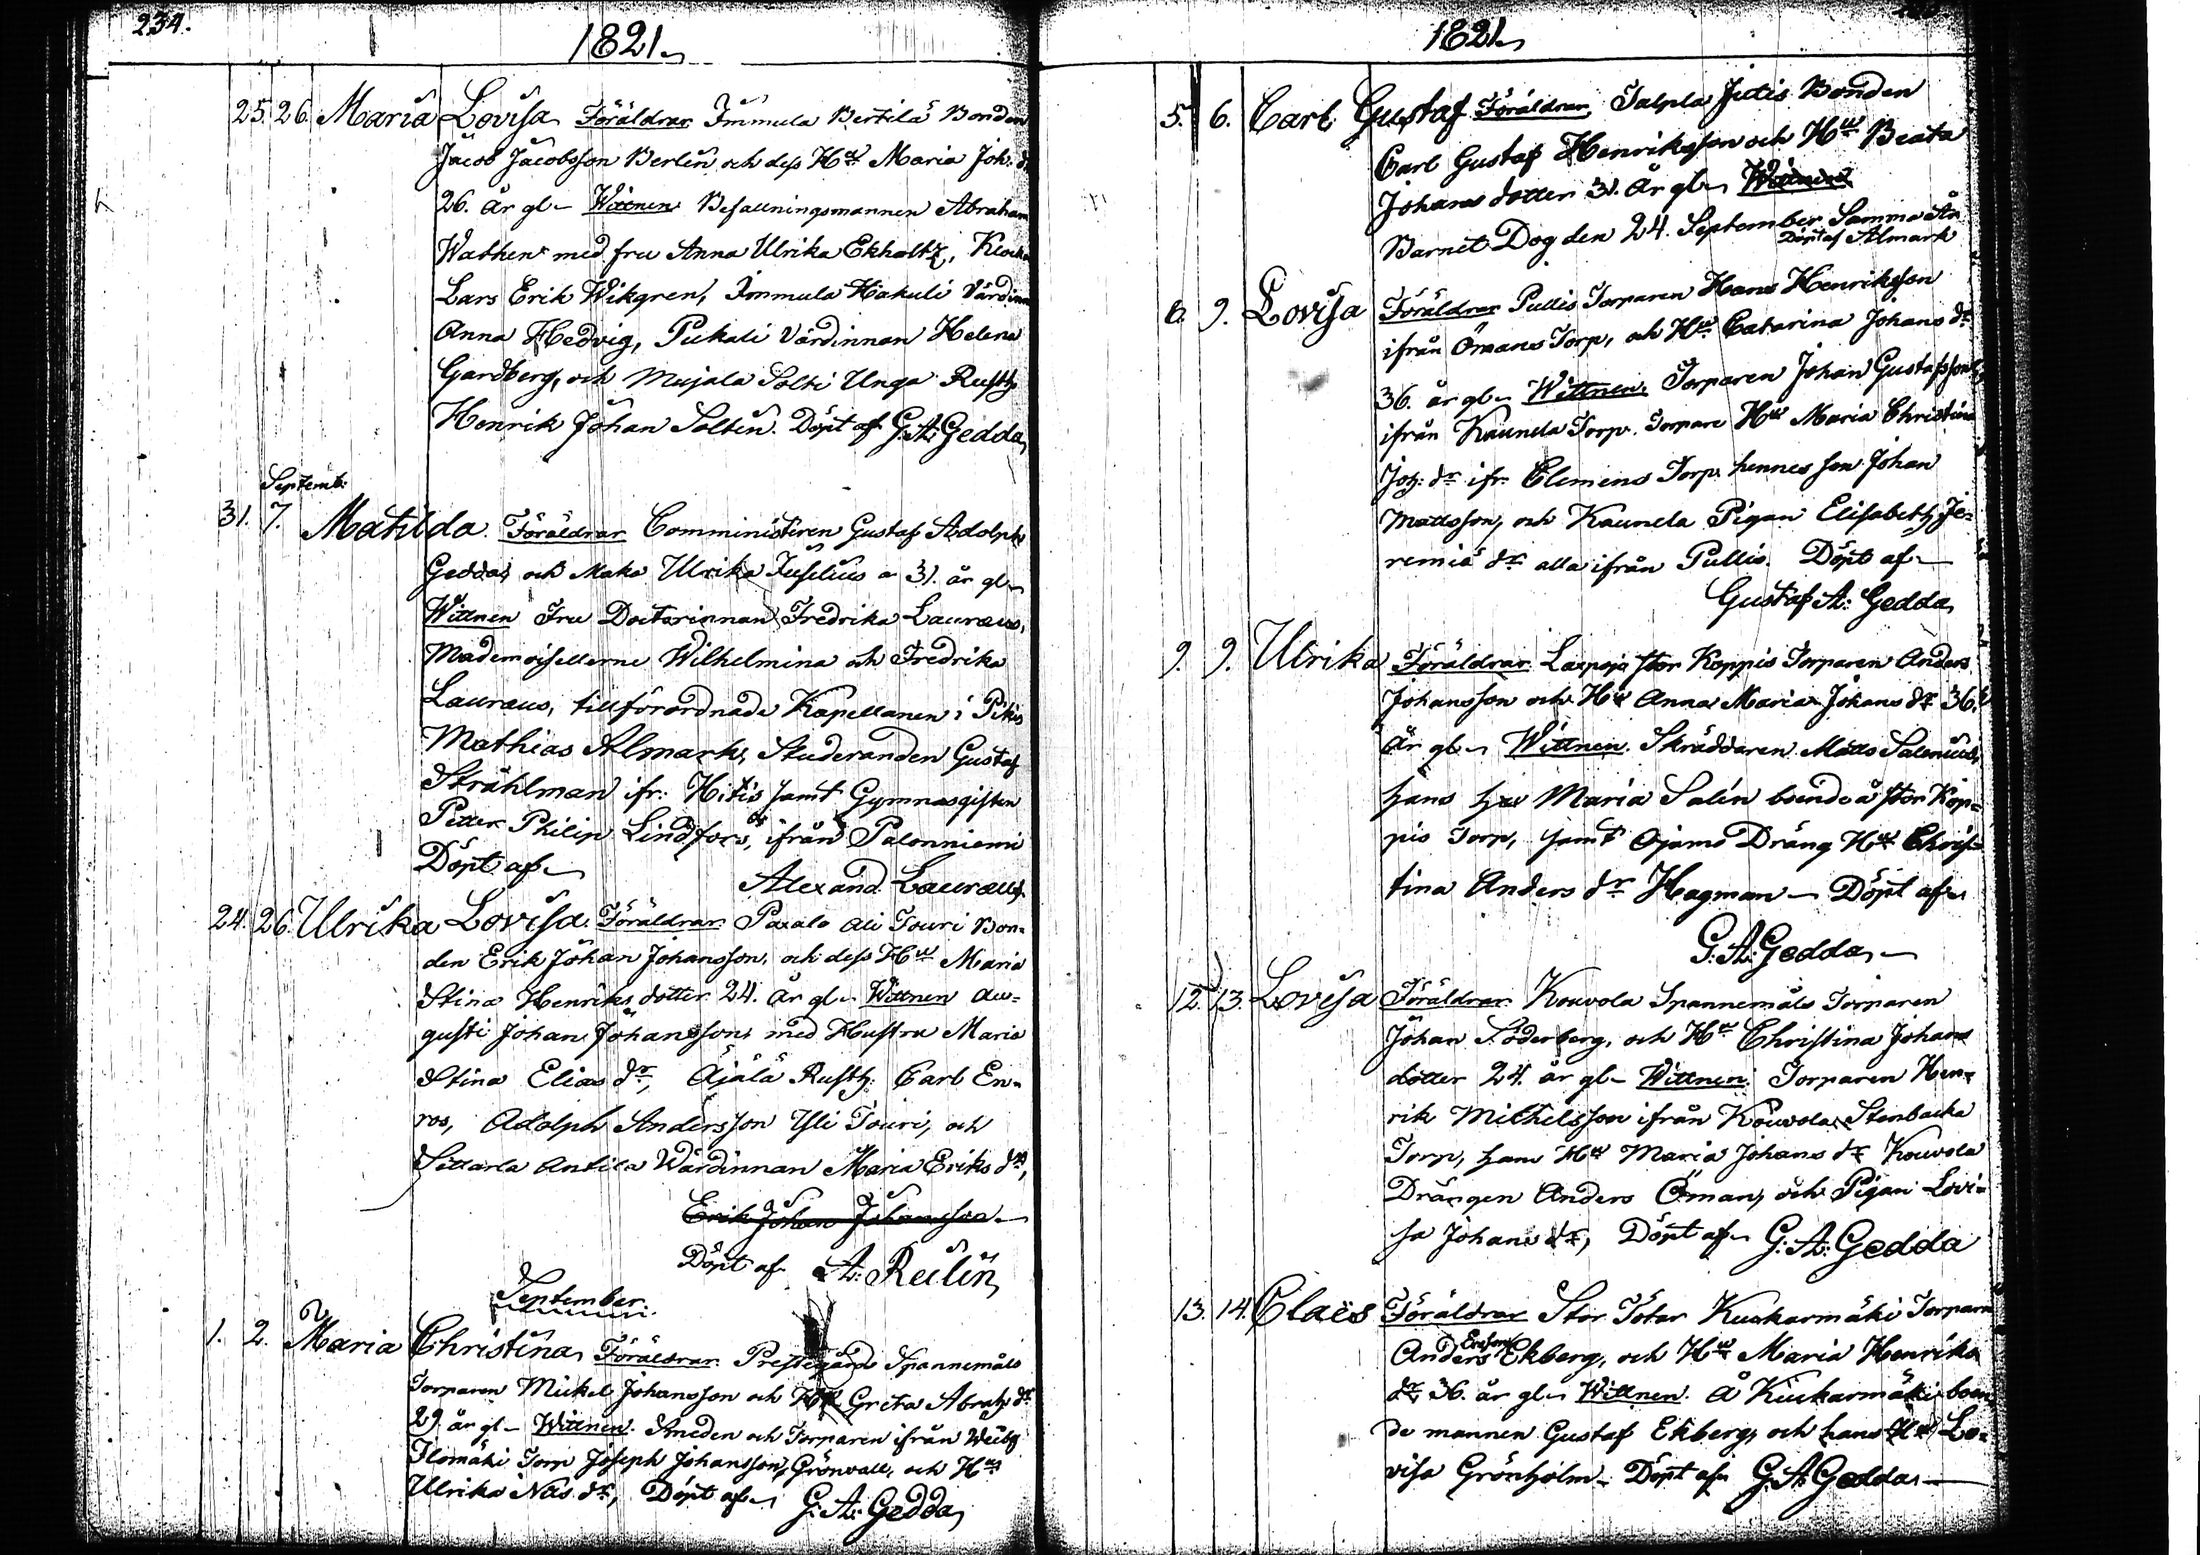 234.
1821.
25. 26. Maria Lovisa Föräldrar Immula Bertilä Bonden
Jacob Jacobsson Berlin och dess Hu Maria Joh. dr
26. år gl. Wittnen Befallningsmannen Abraham
Wathen med fru Anna Ulrika Ekholtz, Klocka
Lars Erik Wikgren, Immula Hakuli Värdinn
Anna Hedvig, Pukali Värdinnan Helena
Gardberg, och Mujala Solti Unga Rusth
Henrik Johan Soltin. Döpt af G. A. Gedda
Septemb:
31. 7. Matilda. Föräldrar Comministern Gustaf Adolph
Gedda och Maka Ulrika Juselius a 31. år gl.
Wittnen Fru Doctorinnan Fredrika Lauraeus,
Mademoisellerne Wilhelmina och Fredrika
Lauraeus, tillförordnade Kapellanen i Pikis
Mathias Almark, Studeranden Gustaf
Stråhlman ifr: Hitis samt Gymnasgisten
Petter Philip Lindfors, ifrån Palonniemi
Döpt af
Alexand. Lauraeus.
24. 26. Ulrika Lovisa. Föräldrar Paxalo Ali Touri Bon-
den Erik Johan Johansson, och dess Hu Maria
Stina Henriks dotter 24. år gl. Wittnen Au-
gusti Johan Johansson med Hustru Maria
Stina Elias dr, Äjälä Rusth: Carl En-
ros, Adolph Andersson Yli Touri, och
Sittarla Antila Wärdinnan Maria Eriks dr,
Erik Johan Johansson
Döpt af A: Reilin
September.
1. 2. Maria Christina Föräldrar Prestegårds Spannemåls
Torparen Mickel Johansson och Hu Greta Abrah dr
29 år gl. Wittnen. Smeden och Torparen ifrån
Ilomäki Torp Joseph Johansson Grönvall, och Hu
Ulrika Nils dr, Döpt af G: A: Gedda
1821.
5. 6. Carl Gustaf Föräldrar Talpla Jutis Bonden
Carl Gustaf Henriksson och Hu Beata
Johans dotter 31. år gl. Wittnen
Barnet Dog den 24. September Samma År
Döpt af Almark
6. 9. Lovisa Föräldrar Pullis Torparen Hans Henriksson
ifrån Ömans Torp, och Hu Catarina Johans dr
36. år gl. Wittnen. Torparen Johan Gustafsson
ifrån Kaunela Torp. Torpare Hu Maria Christina
Joh: dr ifr. Clemens Torp hennes son Johan
Mattsson, och Kaunela Pigan Elisabeth Je-
remiä dr alla ifrån Pullis. Döpt af
Gustaf A: Gedda
9. 9. Ulrika Föräldrar Stor Koppis Torparen Anders
Johansson och Hu Anna Maria Johans dr 36.
år gl. Wittnen. Skräddaren Matts Salenius,
hans Hu Maria Salin boende å Stor Kop-
pis Torp, samt Ojams Dräng Hu Chris-
tina Anders dr Hagman Döpt af
G. A. Gedda
12. 13. Lovisa Föräldrar Kouvola Spannemåls Torparen
Johan Söderberg, och Hu Christina Johans
dotter 24. år gl. Wittnen. Torparen Hen-
rik Milhelsson ifrån Kouvola Stenbacka
Torp, hans Hu Maria Johans dr Kouvola
Drängen Anders Öman, och Pigan Lovi-
sa Johans dr, Döpt af G: A: Gedda
13. 14. Claës Föräldrar Stor Tötar Kuukarmäki Torparn
Anders Ekberg, och Hu Maria Henriks
dr 36. år gl. Wittnen. å Kuukarmäki boen
de mannen Gustaf Ekberg, och hans Hu Lo-
visa Grönholm. Döpt af G. A. Gedda.